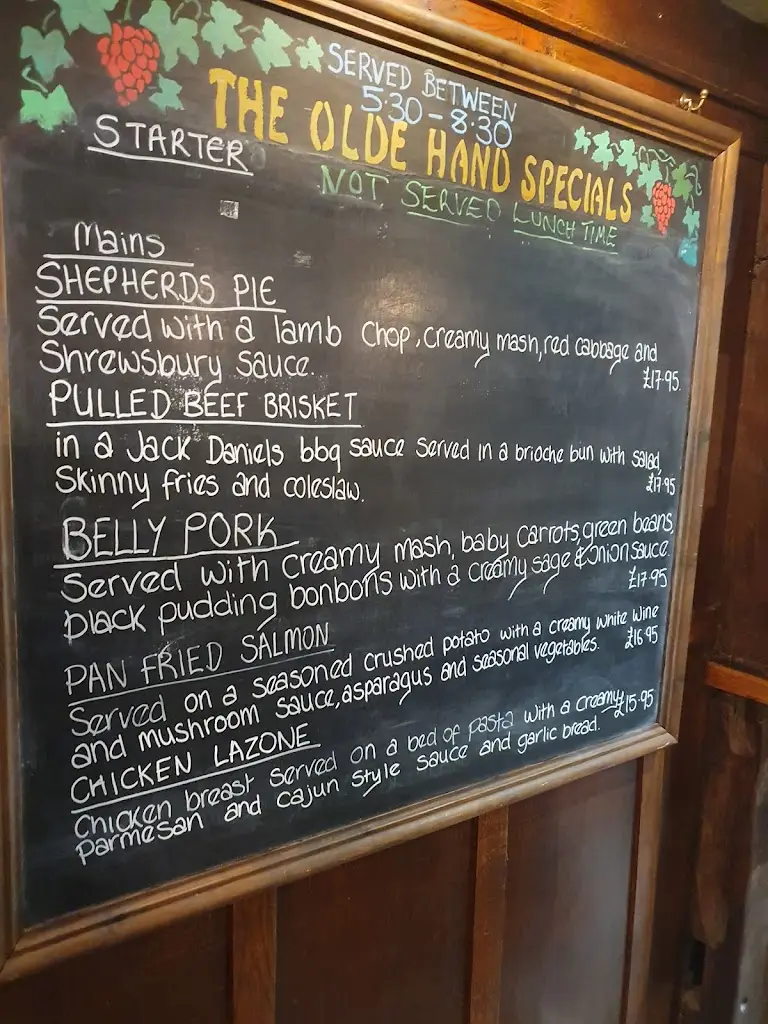 SERVED BETWEEN
5:30 - 8:30
THE OLDE HAND SPECIALS
NOT SERVED LUNCH TIME
STARTER
Mains
SHEPHERDS PIE
Served with a lamb chop, creamy mash, red cabbage and
Shrewsbury sauce.
£17.95.
PULLED BEEF BRISKET
in a Jack Daniels bbq sauce served in a brioche bun with salad,
Skinny fries and coleslaw.
£17.95
BELLY PORK
Served with creamy mash, baby carrots, green beans,
black pudding bonbons with a creamy sage & onion sauce.
£17.95
PAN FRIED SALMON
Served on a seasoned crushed potato with a creamy white wine
and mushroom sauce, asparagus and seasonal vegetables. £16.95
CHICKEN LAZONE
Chicken breast served on a bed of pasta with a creamy £15.95
parmesan and cajun style sauce and garlic bread.